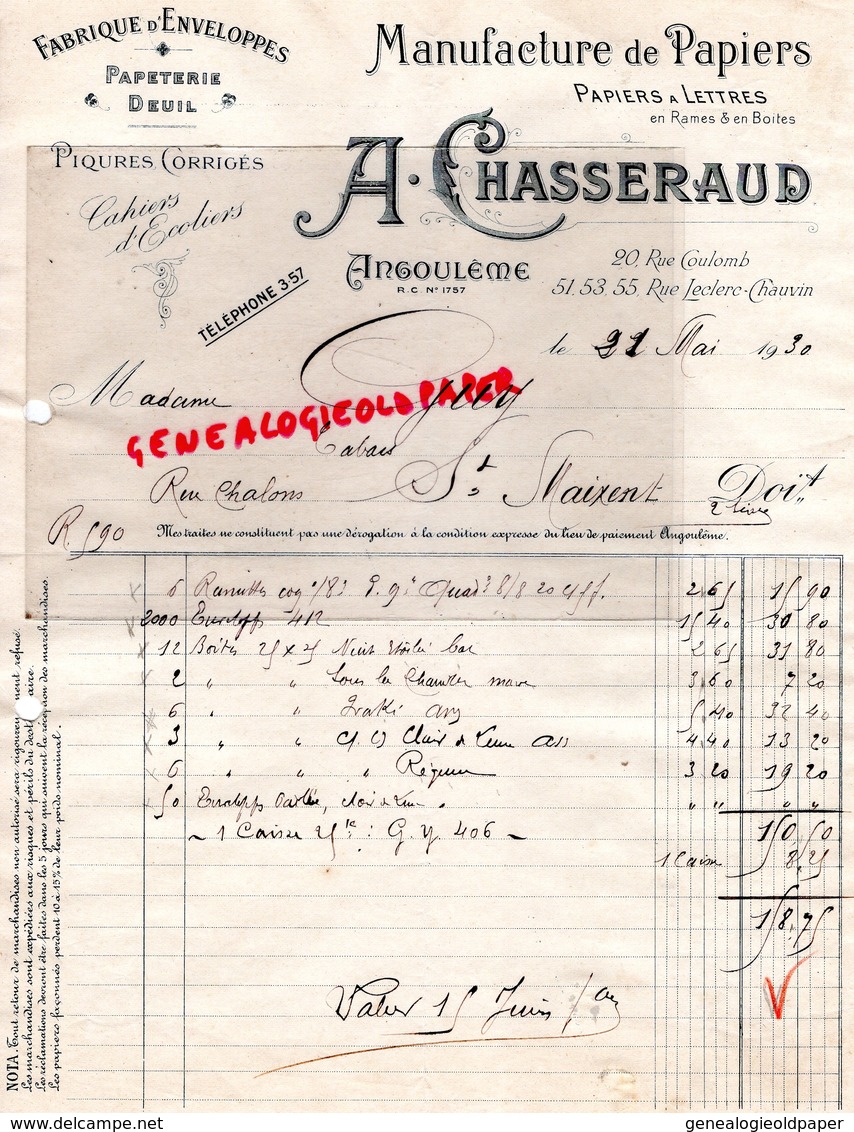 FABRIQUE D'ENVELOPPES
PAPETERIE
DEUIL
PIQURES, CORRIGÉS
Cahiers
d'Ecoliers
TÉLÉPHONE 3.57
Manufacture de Papiers
PAPIERS A LETTRES
en Rames & en Boites
A. CHASSERAUD
ANGOULÊME
R.C. No 1757
20, Rue Coulomb
51, 53, 55, Rue Leclerc-Chauvin
le 21 Mai 1930
Madame Guy
GENEALOGIEOLDPAPER
Tabacs
Rue Chalons St Maixent Doit
R. 590 Mes traites ne constituent pas une dérogation à la condition expresse du lieu de paiement Angoulême.
6 Ramettes coq 8/8 20 2 65 15 90
2000 Envelopp 412 15 40 30 80
12 Boites 25 x 25 Nuit Etoilée 2 65 31 80
2 " " Sous les 3,60 7 20
6 " " 5 40 32 40
3 " " Clair de Lune Ass 4,40 13 20
6 " " " 3 20 19 20
50 Envelopps clair de Lune " " " " "
- 1 Caisse 25 : G.Y. 406 - 150,50
1 Caisse 8,25
158,75
Valeur 15 Juin
NOTA. Tout retour de marchandises non autorisé sera rigoureusement refusé.
Les marchandises sont expédiées aux risques et périls du destinataire.
Les réclamations devront être faites dans les 5 jours qui suivent la réception des marchandises.
Les papiers façonnés perdent 10 à 15% de leur poids nominal.
www.delcampe.net
genealogieoldpaper